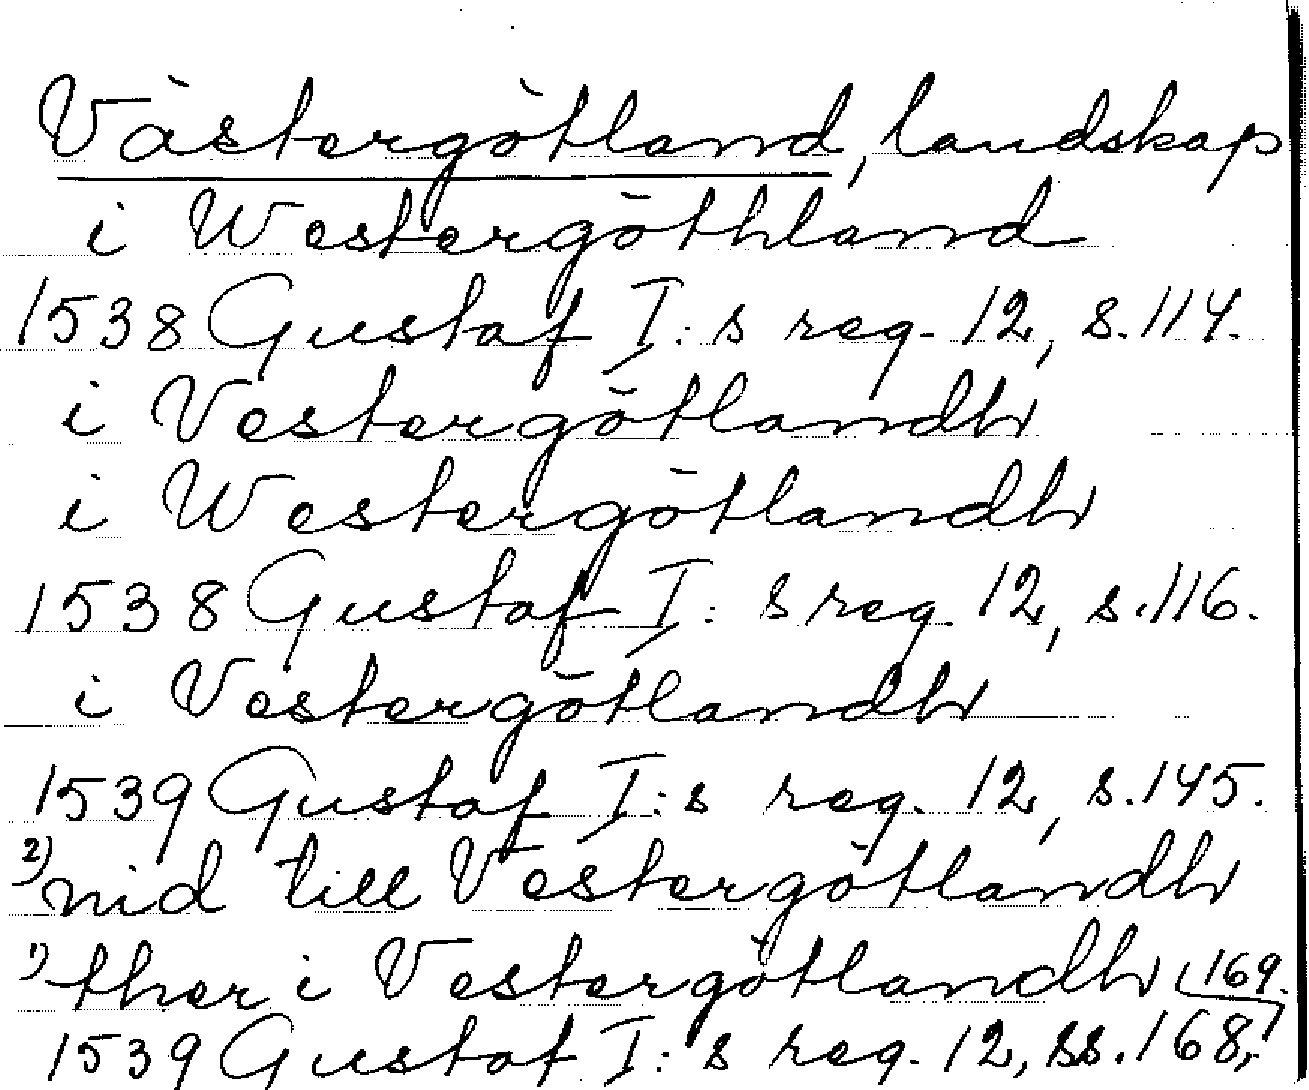 Västergötland, landskap
i Westergöthland
1538 Gustaf I:s reg. 12, s.114.
i Vestergötlandh
i Westergötlandh
1538 Gustaf I:s reg. 12, s.116.
i Vestergötlandh
1539 Gustaf I:s reg. 12, s.145.
2) nid till Vestergötlandh
1) ther i Vestergötlandh
1539 Gustaf I:s reg. 12, ss.168, 169.